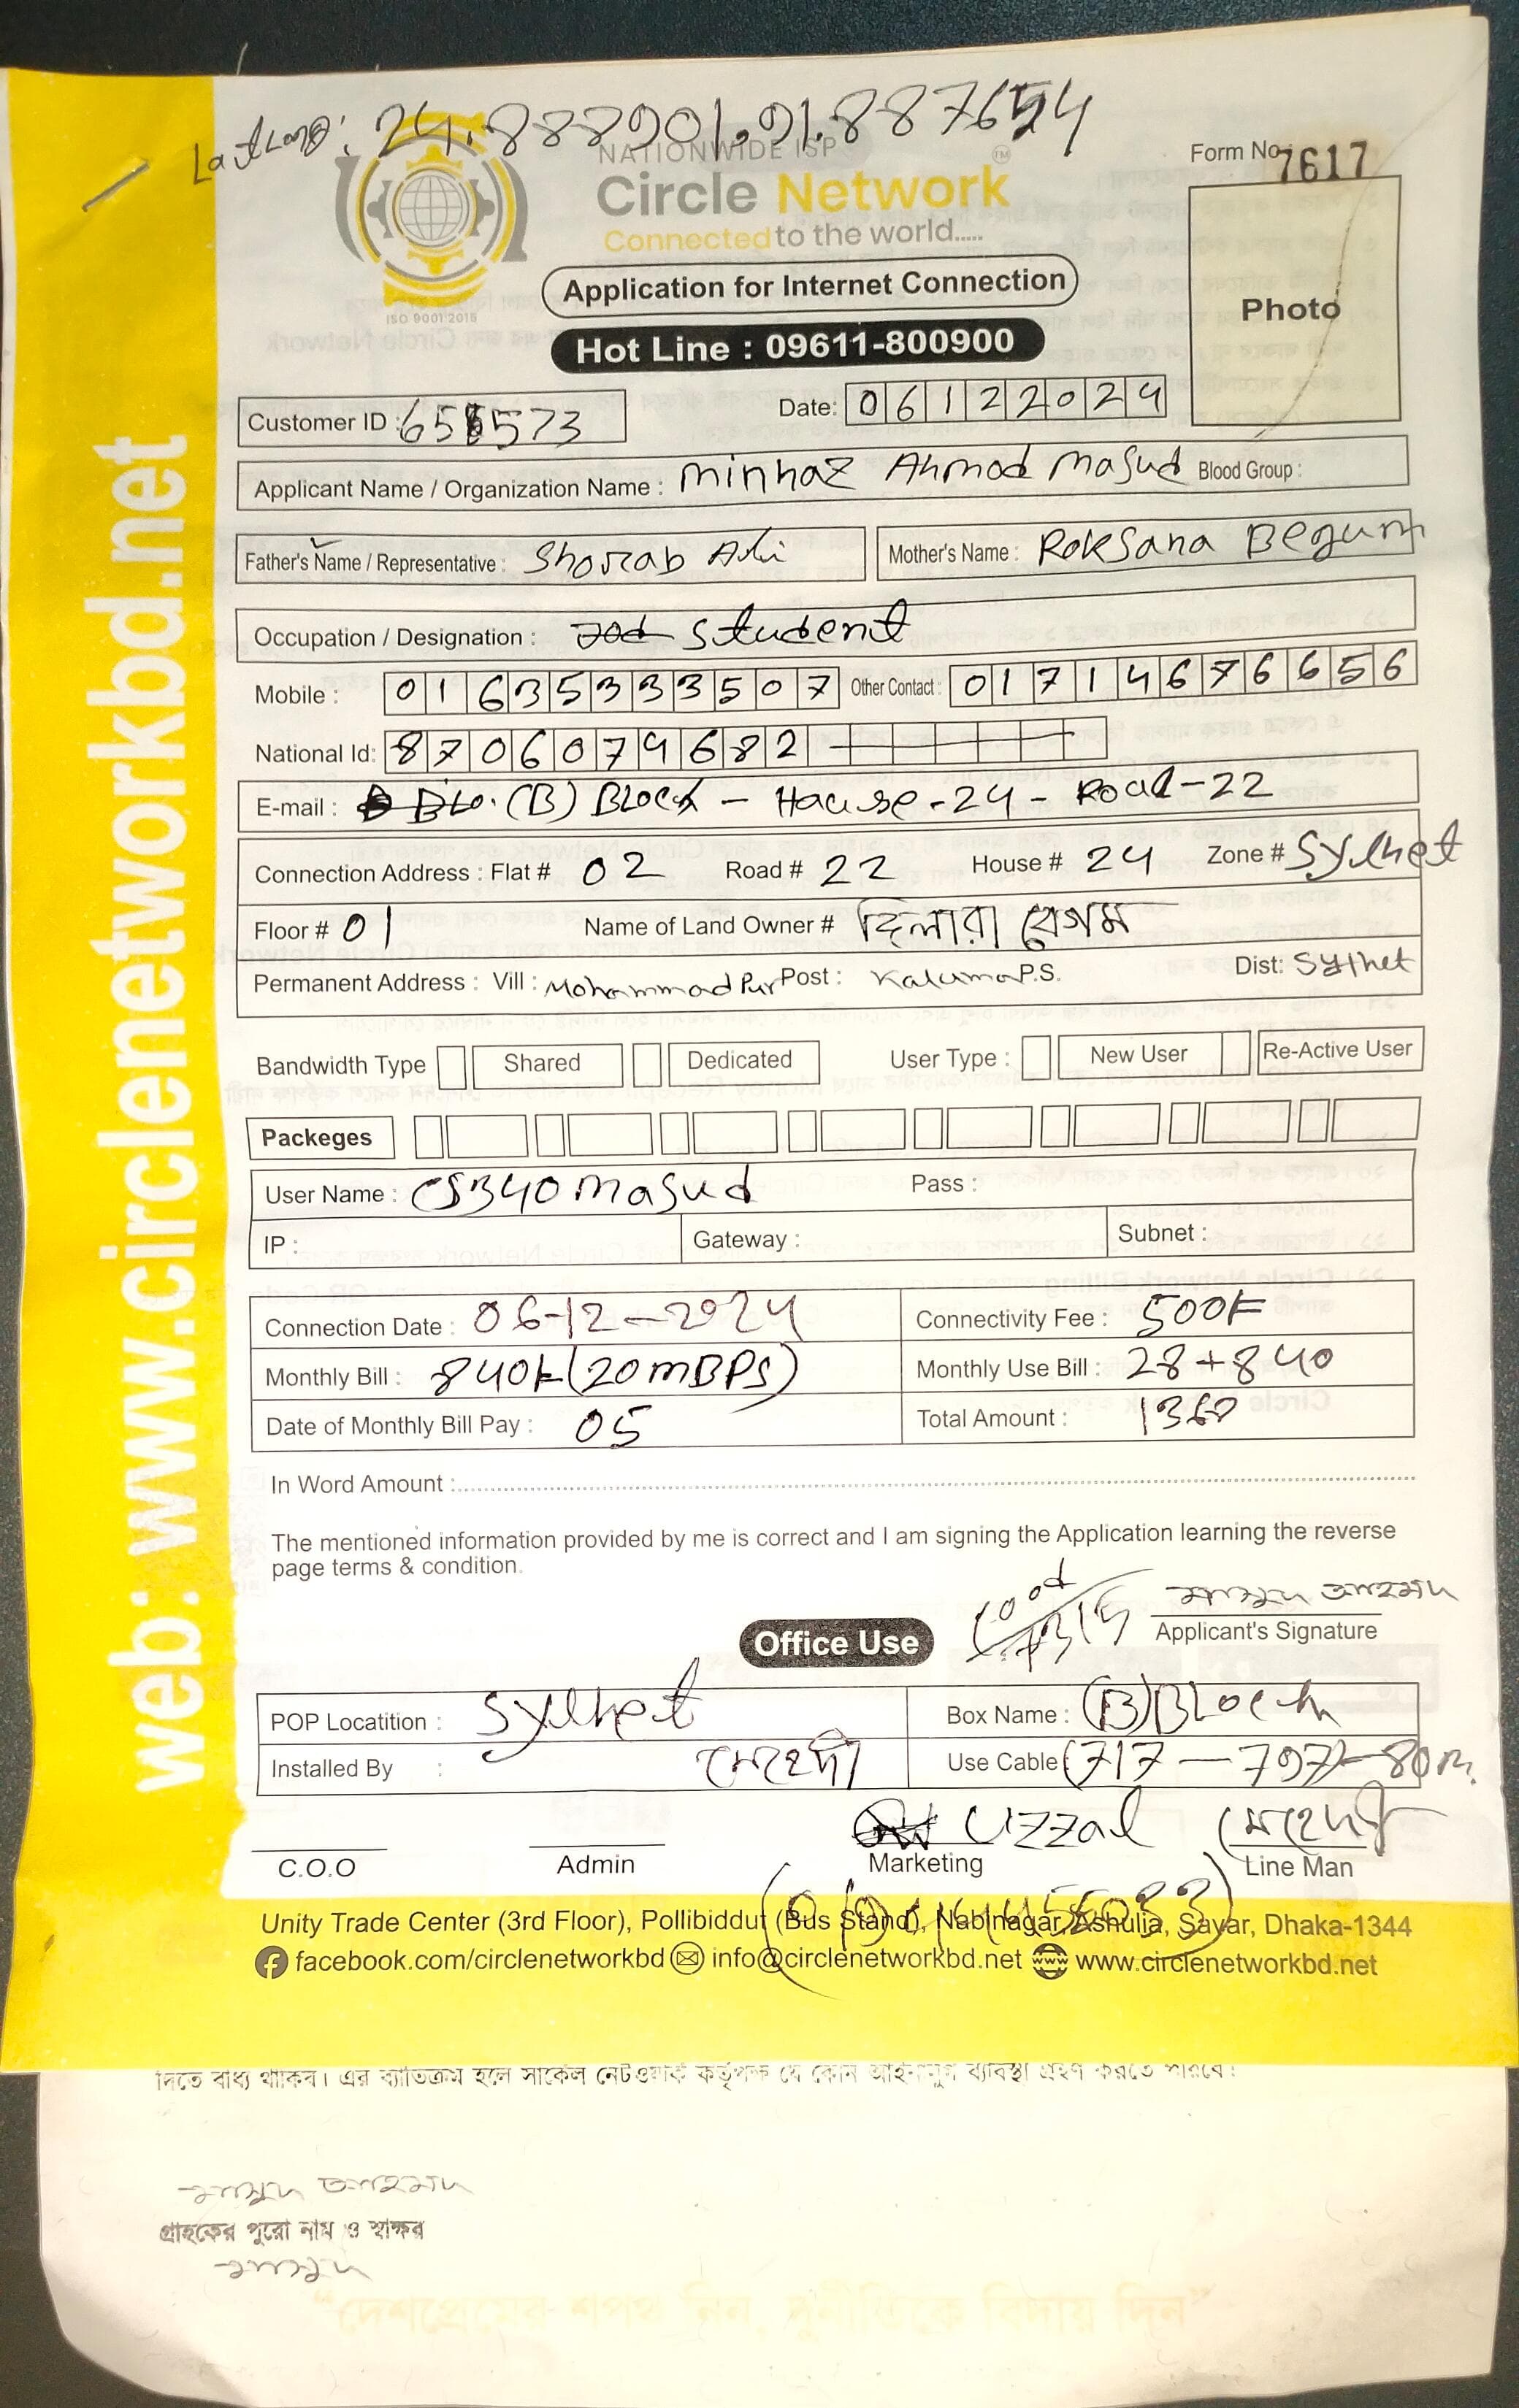 Lat Long: 24.888901, 91.887654
NATIONWIDE ISP
Form No: 7617
Circle Network TM
Connected to the world.....
ISO 9001:2015
Application for Internet Connection
Photo
Hot Line : 09611-800900
Customer ID : 65 573
Date: 06122024
Applicant Name / Organization Name : Minhaz Ahmod Masud Blood Group :
Father's Name / Representative : Shorab Ali Mother's Name : Roksana Begum
Occupation / Designation : Student
Mobile : 01635333507 Other Contact : 01714676656
National Id: 8706074682
E-mail : (B) Block - House-24 - Road-22
Connection Address : Flat # 02 Road # 22 House # 24 Zone # Sylhet
Floor # 01 Name of Land Owner # দিলারা বেগম
Permanent Address : Vill : Mohammadpur Post : Kaluma P.S. Dist: Sylhet
Bandwidth Type Shared Dedicated User Type : New User Re-Active User
Packeges
User Name : CS340masud Pass :
IP : Gateway : Subnet :
Connection Date : 06-12-2024 Connectivity Fee : 500৳
Monthly Bill : 840৳ (20MBPS) Monthly Use Bill : 28+840
Date of Monthly Bill Pay : 05 Total Amount : 1368
In Word Amount :
The mentioned information provided by me is correct and I am signing the Application learning the reverse
page terms & condition.
মাসুদ আহমদ
Office Use
Applicant's Signature
POP Locatition : Sylhet Box Name : (B) Block
Installed By : মেহেদী Use Cable (717 - 797) - 80m
Uzzal মেহেদী
C.O.O Admin Marketing Line Man
Unity Trade Center (3rd Floor), Pollibiddut (Bus Stand), Nabinagar, Ashulia, Savar, Dhaka-1344
facebook.com/circlenetworkbd info@circlenetworkbd.net www.circlenetworkbd.net
web: www.circlenetworkbd.net
দিতে বাধ্য থাকিব। এর ব্যতিক্রম হলে সার্কেল নেটওয়ার্ক কর্তৃপক্ষ যে কোন আইনানুগ ব্যবস্থা গ্রহণ করতে পারবে।
মাসুদ আহমদ
গ্রাহকের পুরো নাম ও স্বাক্ষর
মাসুদ
"দেশপ্রেমের শপথ নিন, দুর্নীতিকে বিদায় দিন"